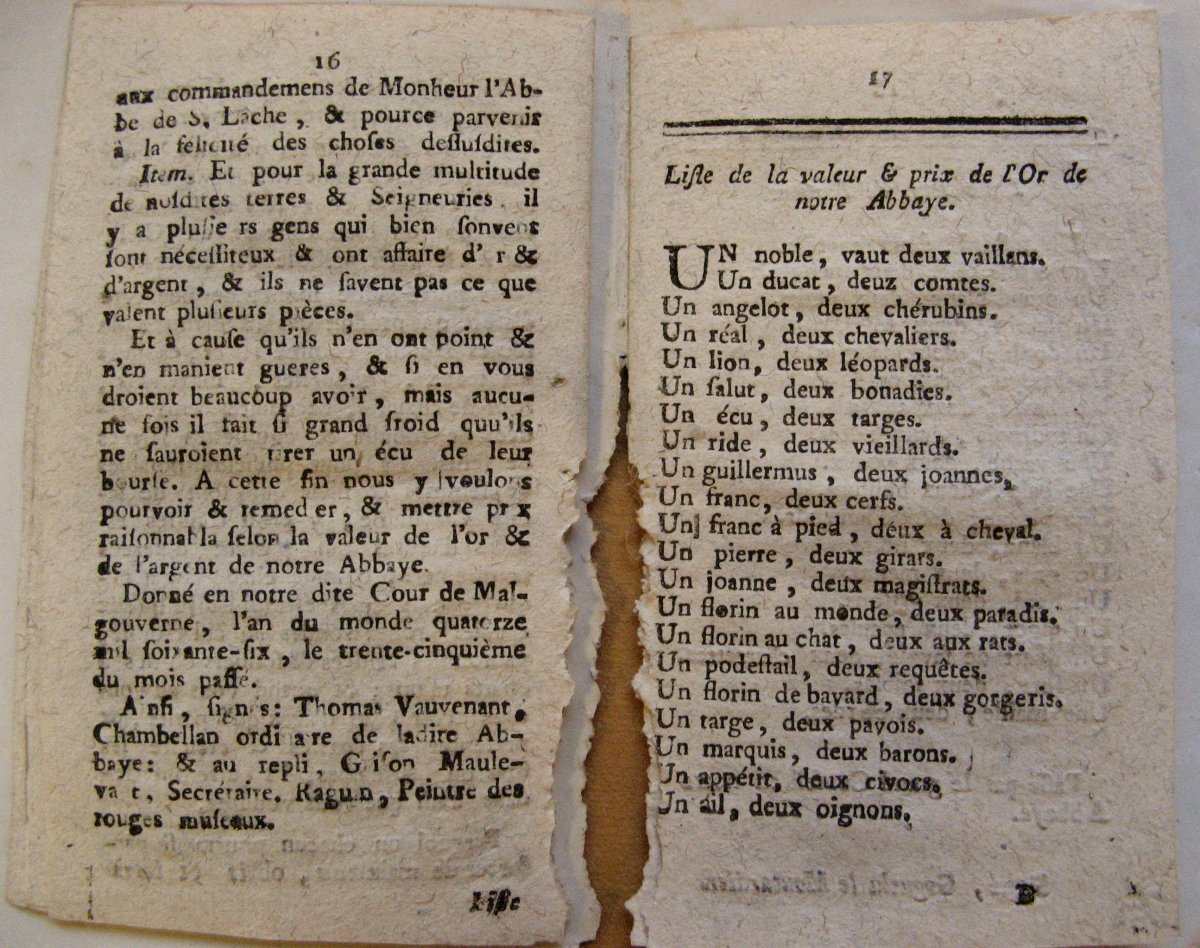 16
aux commandemens de Monheur l'Ab-
be de S. Lâche, & pource parvenir
à la felicité des choses dessusdites.
Item. Et pour la grande multitude
de nosdites terres & Seigneuries il
y a plusie rs gens qui bien sonvent
sont nécessiteux & ont affaire d' r &
d'argent, & ils ne savent pas ce que
valent plusieurs pièces.
Et à cause qu'ils n'en ont point &
n'en manient gueres, & si en vous
droient beaucoup avoir, mais aucu-
ne fois il fait si grand froid quu'ils
ne sauroient tirer un écu de leur
bourse. A cette fin nous y voulons
pourvoir & remed er, & mettre prix
raisonnabla selon la valeur de l'or &
de l'argent de notre Abbaye.
Donné en notre dite Cour de Mal-
gouverne, l'an du monde quatorze
mil soixante-six, le trente-cinquième
du mois passé.
Ainsi, signés: Thomas Vauvenant,
Chambellan ordi aire de ladite Ab-
baye: & au repli, Grison Maule-
va t, Secrétaire. Ragun, Peintre des
rouges museaux.
Liste
17
Liste de la valeur & prix de l'Or de
notre Abbaye.
UN noble, vaut deux vaillans.
Un ducat, deuz comtes.
Un angelot, deux chérubins.
Un réal, deux chevaliers.
Un lion, deux léopards.
Un salut, deux bonadies.
Un écu, deux targes.
Un ride, deux vieillards.
Un guillermus, deux joannes,
Un franc, deux cerfs.
Un franc à pied, deux à cheval.
Un pierre, deux girars.
Un joanne, deux magistrats.
Un florin au monde, deux paradis.
Un florin au chat, deux aux rats.
Un podestail, deux requêtes.
Un florin de bayard, deux gorgeris.
Un targe, deux pavois.
Un marquis, deux barons.
Un appétit, deux civocs.
Un ail, deux oignons.
B